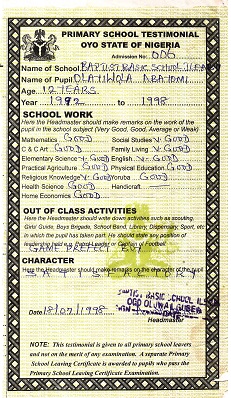 PRIMARY SCHOOL TESTIMONIAL
OYO STATE OF NIGERIA
Admission No: 006
Name of School BAPTIST BASIC SCHOOL
Name of Pupil OLATILOLA
Age 12 YEARS
Year 1992 to 1998
SCHOOL WORK
Here the Headmaster should make remarks on the work of the
pupil in the school subject (Very Good, Good, Average or Weak)
Mathematics GOOD Social Studies V. GOOD
C & C Art GOOD Family Living V. GOOD
Elementary Science V. GOOD English V. GOOD
Practical Agriculture GOOD Physical Education GOOD
Religious Knowledge V. GOOD Yoruba GOOD
Health Science GOOD Handicraft
Home Economics GOOD
OUT OF CLASS ACTIVITIES
Here the Headmaster should write down activities such as scouting,
Girls' Guide, Boys Brigade, School Band, Library, Dispensary, Sport, etc
in which the pupil has taken part. He should state any position of
leadership held e.g. School Leader or Captain of Football
GAME PREFECT
CHARACTER
Here the Headmaster should make remarks on the character of the pupil
SATISFACTORY
BASIC SCHOOL II
OGO OLUWA
Date 18/07/1998
Headmaster
NOTE: This testimonial is given to all primary school leavers
and not on the merit of any examination. A separate Primary
School Leaving Certificate is awarded to pupils who pass the
Primary School Leaving Certificate Examination.